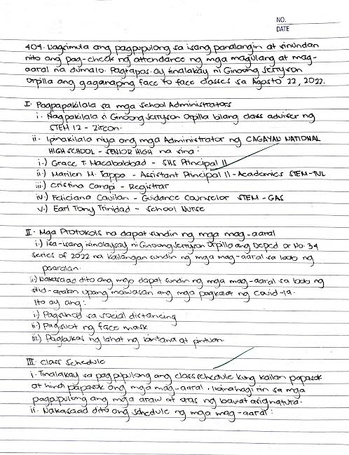 NO.
DATE
4:04. Nagsimula ang pagpupulong sa isang panalangin at sinundan
nito ang pag-check ng attendance ng mga magulang at mag-
aaral na dumalo. Pagtapos ay tinalakay ni Ginoong Jerryson
Orpilla ang gaganaping face to face classes sa Agosto 22, 2022.
I. Pagpapakilala sa mga School Administrators
i. Nagpakilala ni Ginoong Jerryson Orpilla bilang class adviser ng
STEM 12 - Zircon.
ii. Ipinakilala niya ang mga Administrator ng CAGAYAN NATIONAL
HIGH SCHOOL - SENIOR HIGH na sina:
i.) Grace T. Macababbad - SHS Principal II
ii.) Marilen M. Tappa - Assistant Principal II - Academics STEM-TVL
iii.) Cristina - Registrar
iv.) Feliciana Cauilan - Guidance Counselor STEM - GAS
v.) Earl Tony Trinidad - School Nurse
II. Mga Protokols na dapat sundin ng mga mag-aaral
i.) Isa-isang tinalakay ni Ginoong Jerryson Orpilla ang Deped or No. 34
series of 2022 na kailangan sundin ng mga mag-aaral sa loob ng
paaralan.
ii.) Nakasaad dito ang mga dapat sundin ng mga mag-aaral sa loob ng
silid-aralan upang maiwasan ang mga pagkalat ng Covid-19.
Ito ay ang:
i) social distancing
ii) Pagsuot ng face mask
iii) Pagbukas ng lahat ng bintana at pintuan
III. Class Schedule
i. Tinalakay sa pagpupulong ang class schedule kung kailan papasok
at hindi papasok ang mga mag-aaral. Ibinahagi rin sa mga
pagpupulong ang mga araw at oras ng bawat asignatura.
ii. Nakasaad dito ang schedule ng mga mag-aaral: